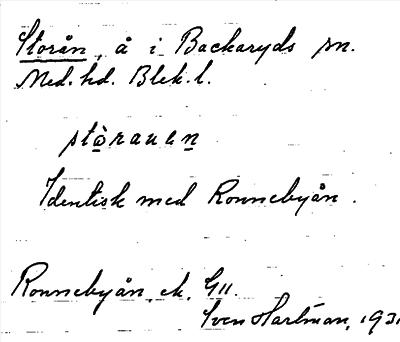 Storån, å i Backaryds sn.
Med. hd. Blek. l.
stòrauen
Identisk med Ronnebyån.
Ronnebyån, ek. G11.
Sven Hartman, 193